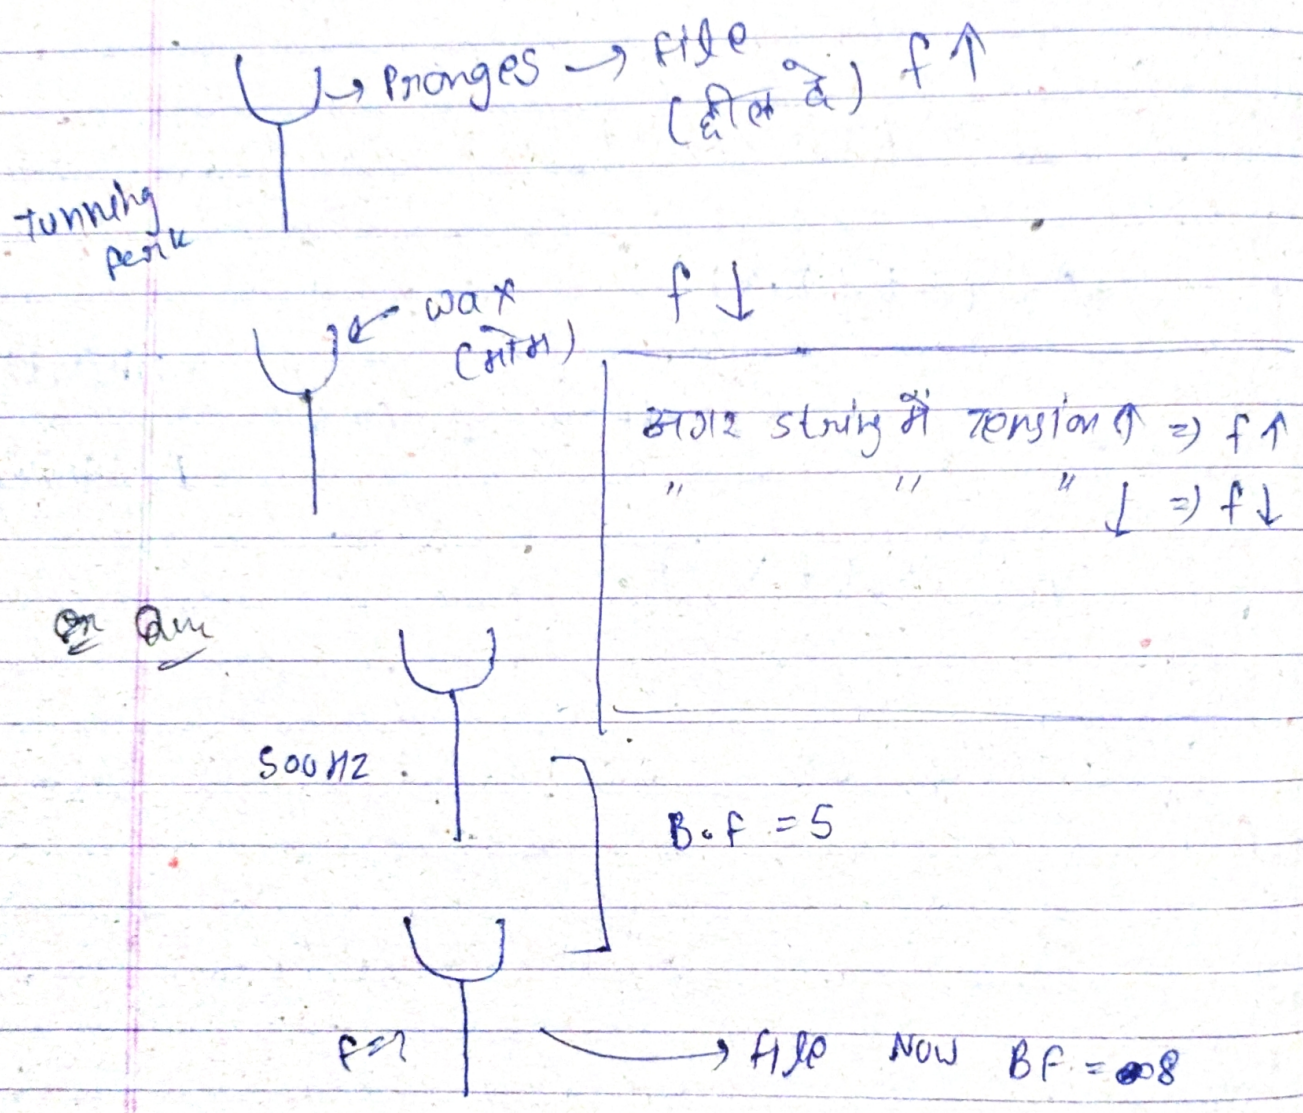 Pronges → file f↑
(छील दे)
Tunning
fork
wax f ↓
(मोम)
अगर string में Tension ↑ ⇒ f ↑
" " " ↓ ⇒ f ↓
Que
500HZ
B.f = 5
f=?
file Now BF = 8